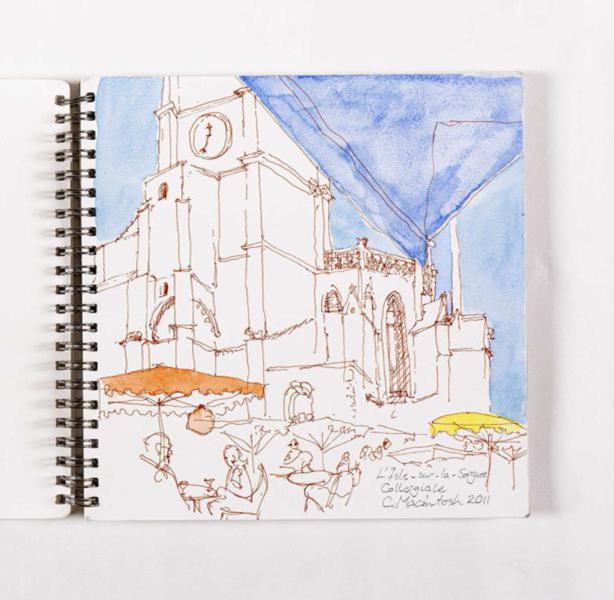 L'Isle-sur-la-Sorgue
Collegiale
C. Macintosh 2011